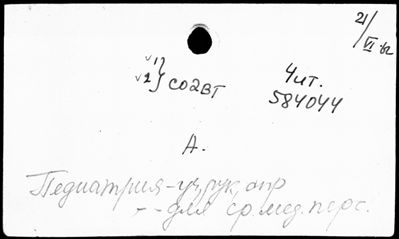 21/VI 62
√1} √2} СО2ВТ
Чит.
584044
А.
Педиатрия-уч, рук, опр
-- для ср. мед. перс.